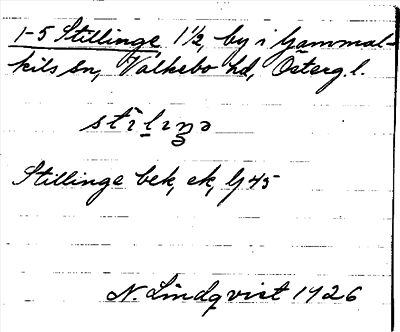 1-5 Stillinge, 1 1/2, by i Gammal-
kils sn, Valkebo hd, Österg.l.
Stillinge bek, ek, G 45
N. Lindqvist 1926